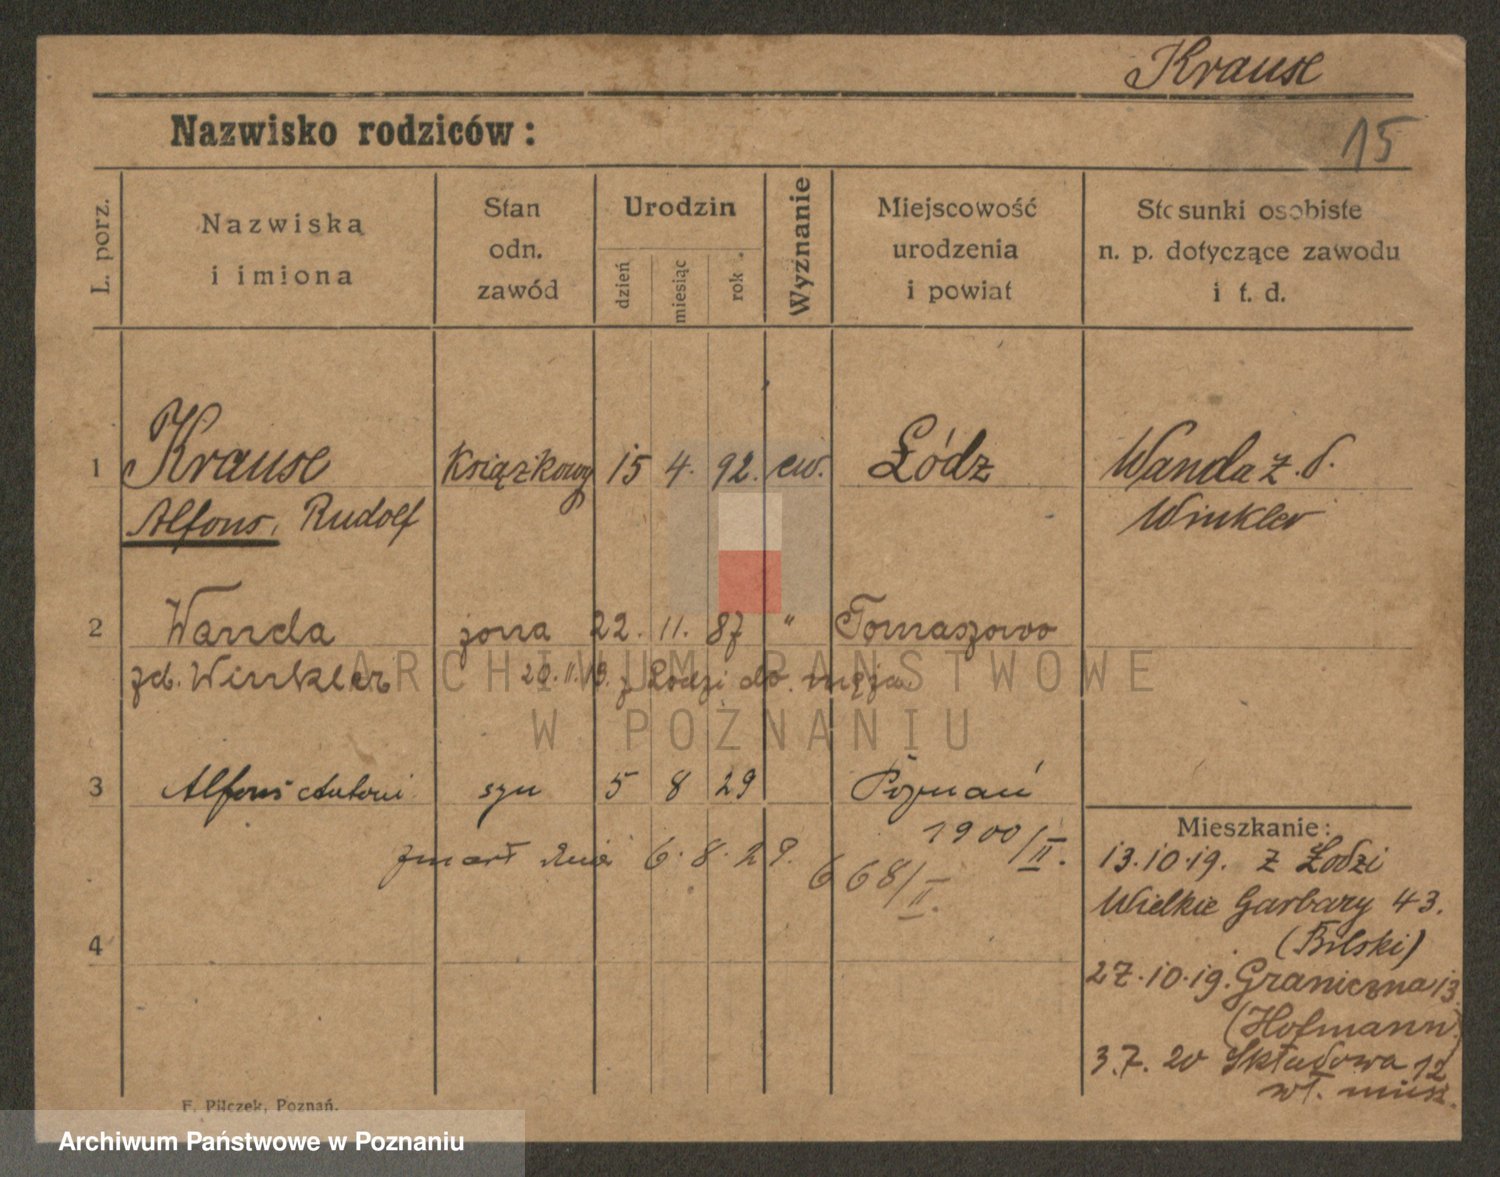 Krause
15
Nazwisko rodziców:
L. porz.
Nazwiska
i imiona
Stan
odn.
zawód
Urodzin
dzień
miesiąc
rok
Wyznanie
Miejscowość
urodzenia
i powiat
Stosunki osobiste
n. p. dotyczące zawodu
i t. d.
1 Krause Książkowy 15 4. 92. ew. Łódz Wanda z. d.
Alfons, Rudolf Winkler
2 Wanda żona 22. 11. 87 " Tomaszowo
zd. Winkler 20. 11. 19. z Łodzi do męża
ARCHIWUM PAŃSTWOWE
W POZNANIU
3 Alfons Antoni syn 5 8 29 Poznań
zmarł dnia 6. 8. 29.
1900/II.
668/II.
4
Mieszkanie:
13.10.19. z Łodzi
Wielkie Garbary 43.
(Bilski)
27.10.19. Graniczna 13.
(Hofmann)
3.7. 20 Składowa 12
wł. miesz.
F. Pilczek, Poznań.
Archiwum Państwowe w Poznaniu